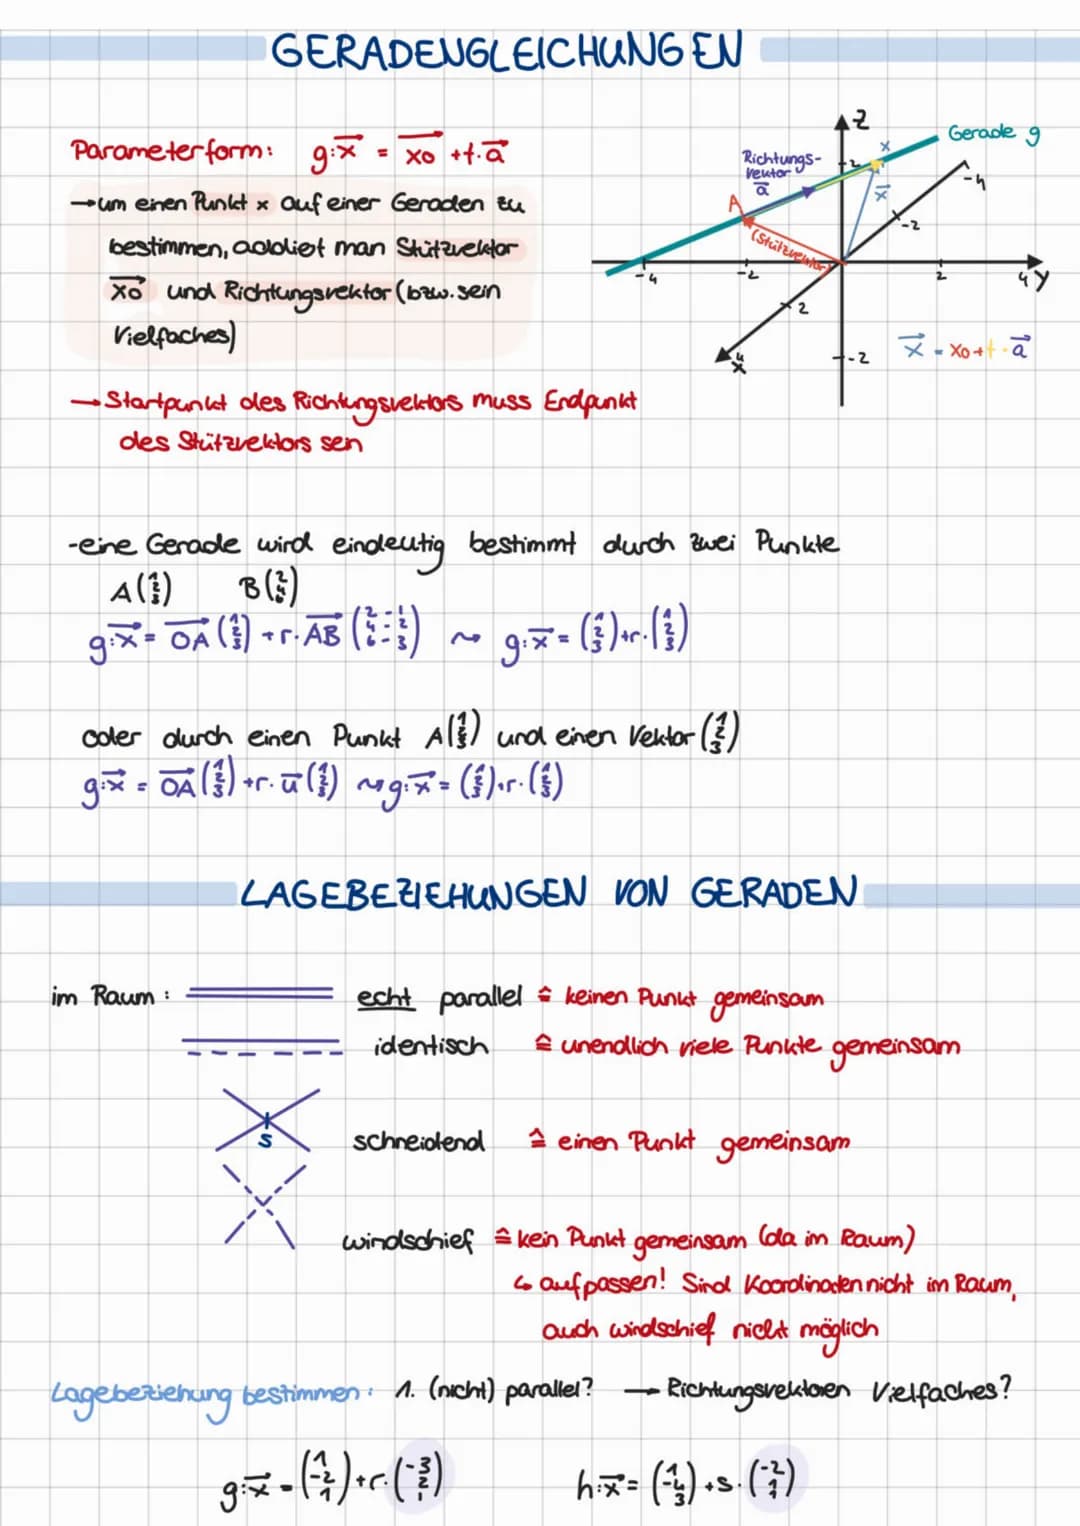 GERADENGLEICHUNGEN
Parameterform: g:x⃗ = x₀⃗ + t·a⃗
→ um einen Punkt x auf einer Geraden zu
bestimmen, addiert man Stützvektor
x₀⃗ und Richtungsvektor (bzw. sein
Vielfaches)
→ Startpunkt des Richtungsvektors muss Endpunkt
des Stützvektors sein
z
Gerade g
Richtungs-
vektor
a⃗
x
x⃗
A
(Stützvektor)
2
-4
-2
-4
-2
2
4 y
2
4
x
-2
x⃗ = x₀ + t · a⃗
- eine Gerade wird eindeutig bestimmt durch zwei Punkte
A(1 2 3) B(2 4 6)
g:x⃗ = OA⃗ (1 2 3) + r · AB⃗ (2-1 4-2 6-3) ⤳ g:x⃗ = (1 2 3) + r · (1 2 3)
oder durch einen Punkt A(1 2 3) und einen Vektor (1 2 3)
g:x⃗ = OA⃗ (1 2 3) + r · u⃗ (1 2 3) ⤳ g:x⃗ = (1 2 3) + r · (1 2 3)
LAGEBEZIEHUNGEN VON GERADEN
im Raum : echt parallel ≙ keinen Punkt gemeinsam
identisch ≙ unendlich viele Punkte gemeinsam
S
schneidend ≙ einen Punkt gemeinsam
windschief ≙ kein Punkt gemeinsam (da im Raum)
↳ aufpassen! Sind Koordinaten nicht im Raum,
auch windschief nicht möglich
Lagebeziehung bestimmen : 1. (nicht) parallel? → Richtungsvektoren Vielfaches?
g:x⃗ = (1 -2 1) + r · (-3 2 1) h:x⃗ = (1 -4 3) + s · (-2 1 1)